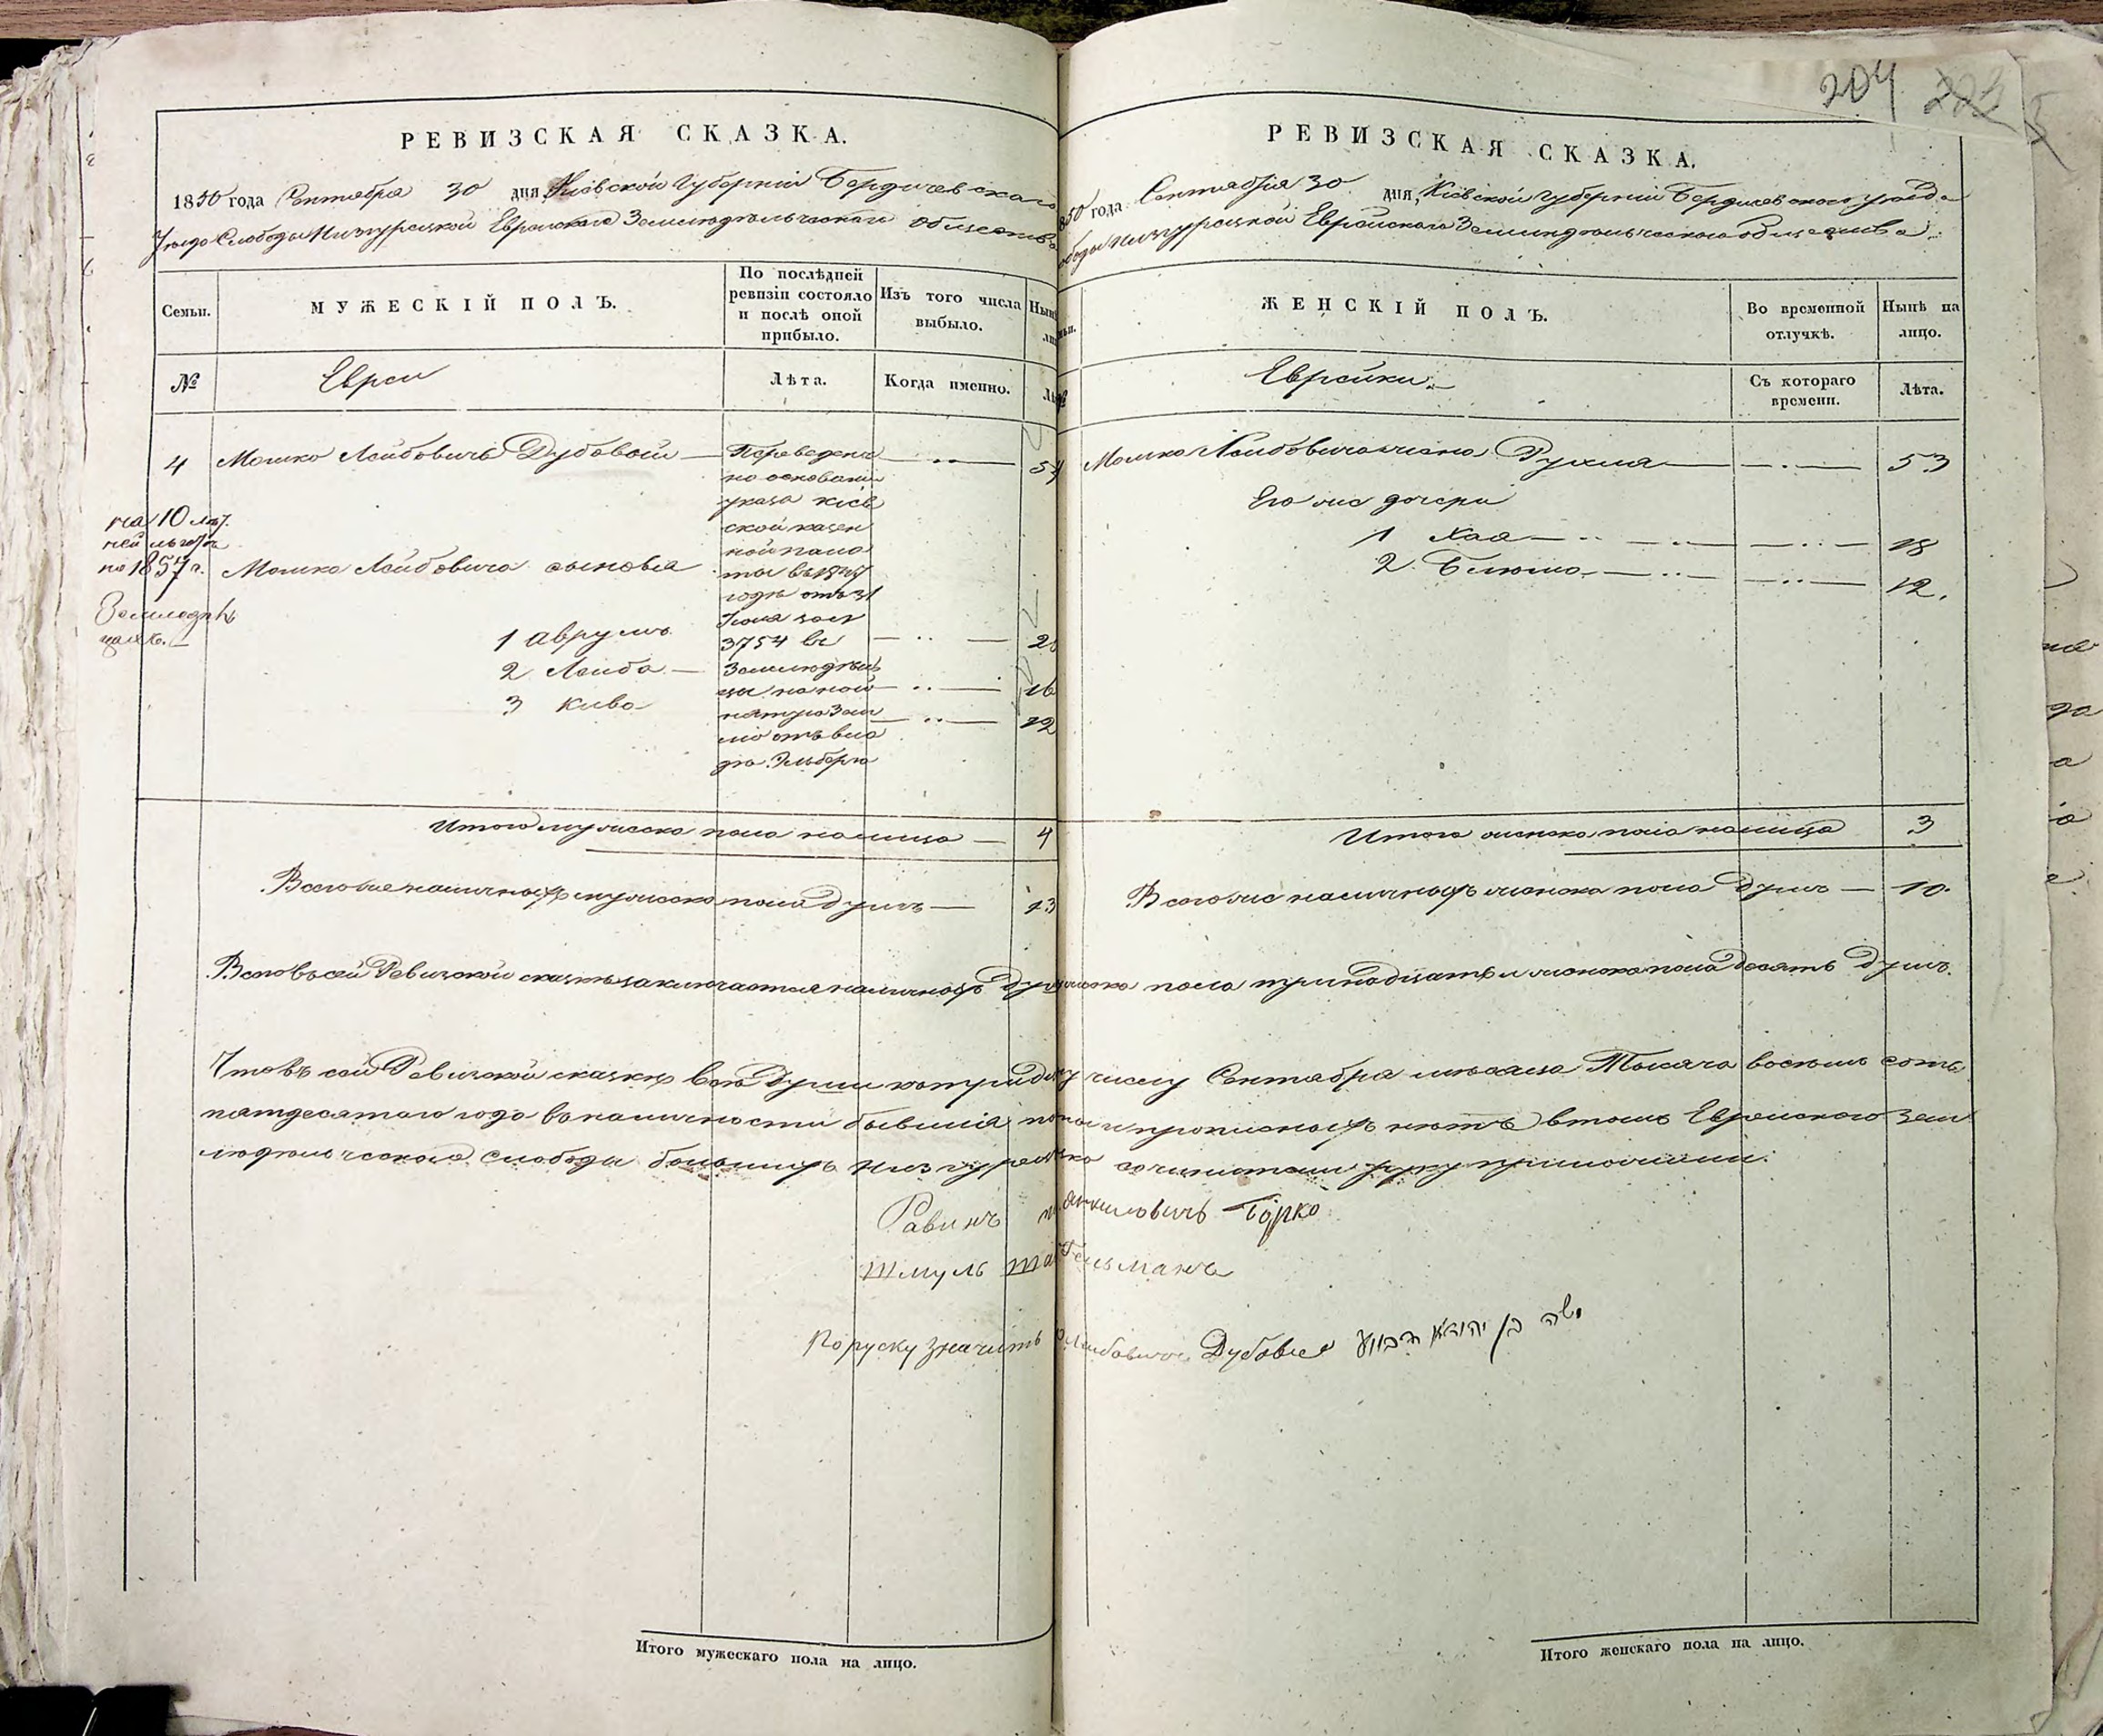 204
РЕВИЗСКАЯ СКАЗКА.
1850 года Сентября 30 дня, Кіевской Губерніи Бердичевскаго
Уезда Слободы Низгурецкой Еврейскаго Земледельческаго Общества
Семьи.
МУЖЕСКІЙ ПОЛЪ.
По послѣдней ревизіи состояло и послѣ оной прибыло.
Изъ того числа выбыло.
№
Евреи
Лѣта.
Когда именно.
4 Мошко Лейбовичъ Дубовой
Переведенъ
на основаніи
указа Кіев
ской казен
ной пала
ты
годе отъ 31
3754 въ
Земледель
цы на
отъ вла
54
на 10 лет.
ней льготе
по 1857 г.
Земледѣ
Мошка Лейбовича сыновья
1 Аврумъ
2 Лейба 16
3 Кива 12
Итого мужеска пола налицо 4
Всего же наличныхъ мужеска пола душъ 13
РЕВИЗСКАЯ СКАЗКА.
года Сентября 30 дня, Кіевской Губерніи Бердичевского уезда
Низгурецкой Еврейскаго Земледельческаго общества
ЖЕНСКІЙ ПОЛЪ.
Во временной отлучкѣ.
Нынѣ на лицо.
Еврейки
Съ котораго времени.
Лѣта.
Мошка Лейбовича жена Рухля 53
Его же дочери
1 Хая 18
2 Блюма 12.
Итого женска пола налицо 3
Всего же наличныхъ женска пола душъ 10
Всего въ сей Ревизской сказке заключается наличныхъ душъ мужска пола тринадцать и женска пола десять душъ.
Что въ сей Ревизской сказке все души по тридцатому числу Сентября месяца Тысяча восемь сотъ
пятдесятаго года в наличности бывшія показаны и прописныхъ нетъ в томъ Еврейского Зем
ледельческаго слободы большихъ Низгурецъ сочинители руку приложили.
Равинъ Янкиловичъ Борко
Шмуль Гельманъ
По руску значитъ Лейбовичъ Дубовый משה בן יהודא
Итого мужескаго пола на лицо.
Итого женскаго пола на лицо.